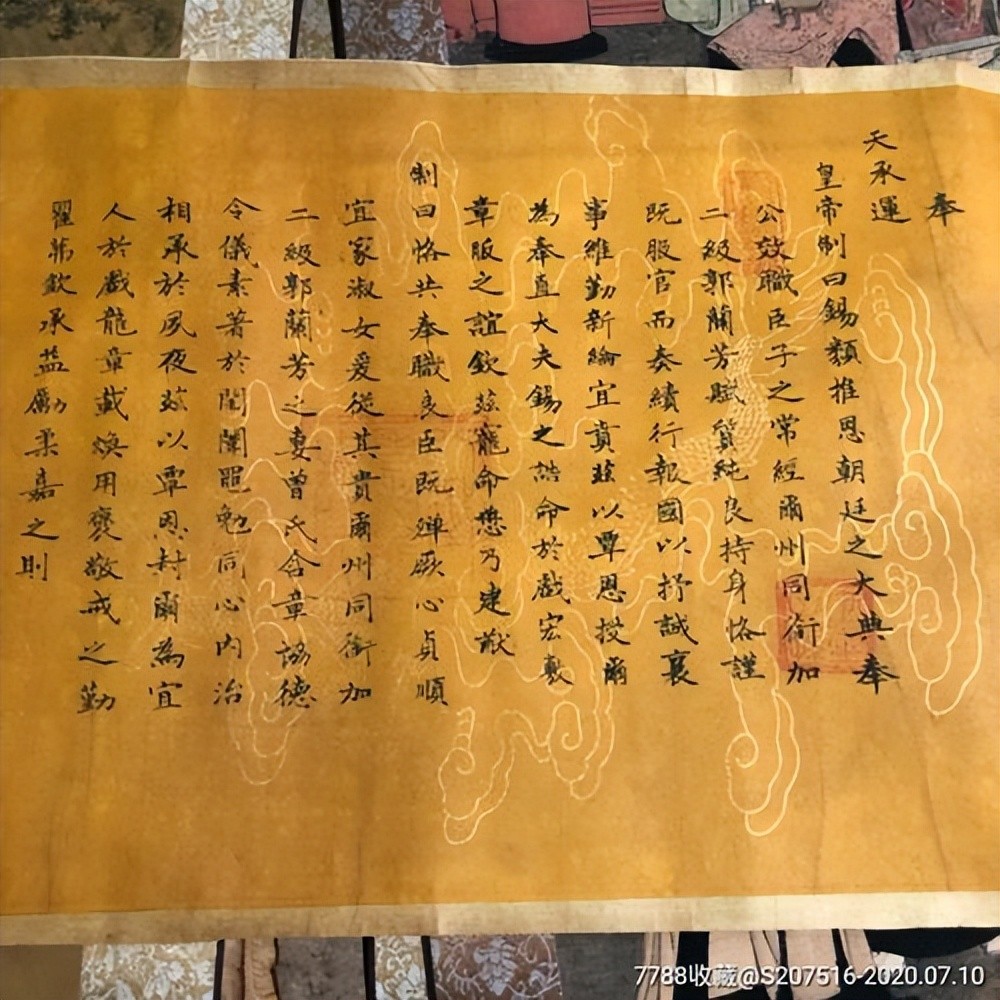 奉
天承運
皇帝制曰錫類推恩朝廷之大典奉
公效職臣子之常經爾州同銜加
二級郭蘭芳賦質純良持身恪謹
既服官而奏績行報國以抒誠襄
事維勤新綸宜賁茲以覃恩授爾
為奉直大夫錫之誥命於戲宏敷
章服之誼欽茲寵命懋乃建猷
制曰恪共奉職良臣既殫厥心貞順
宜家淑女爰從其貴爾州同銜加
二級郭蘭芳之妻曾氏含章協德
令儀素著於閨闈黽勉同心內治
相承於夙夜茲以覃恩封爾為宜
人於戲龍章載煥用褒敬戒之勤
翟茀欽承益勵柔嘉之則
7788收藏@S207516-2020.07.10